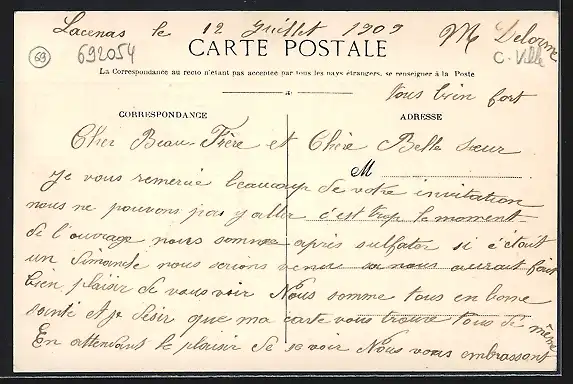 Lacenas le 12 Juillet 1909
M Delorme
69
692054
C-Ville
CARTE POSTALE
La Correspondance au recto n'étant pas acceptée par tous les pays étrangers, se renseigner à la Poste
tous bien fort
CORRESPONDANCE
ADRESSE
Cher Beau-Frère et Chère Belle sœur
M
Je vous remercie beaucoup de votre invitation
nous ne pouvons pas y aller c'est trop le moment
de l'ouvrage nous somme après sulfater si c'était
un Dimanche nous serions venu sa nous aurait fait
bien plaisir de vous voir Nous somme tous en bone
santé et je désir que ma carte vous trouve tous de même
En attendant le plaisir de se voir Nous vous embrassont